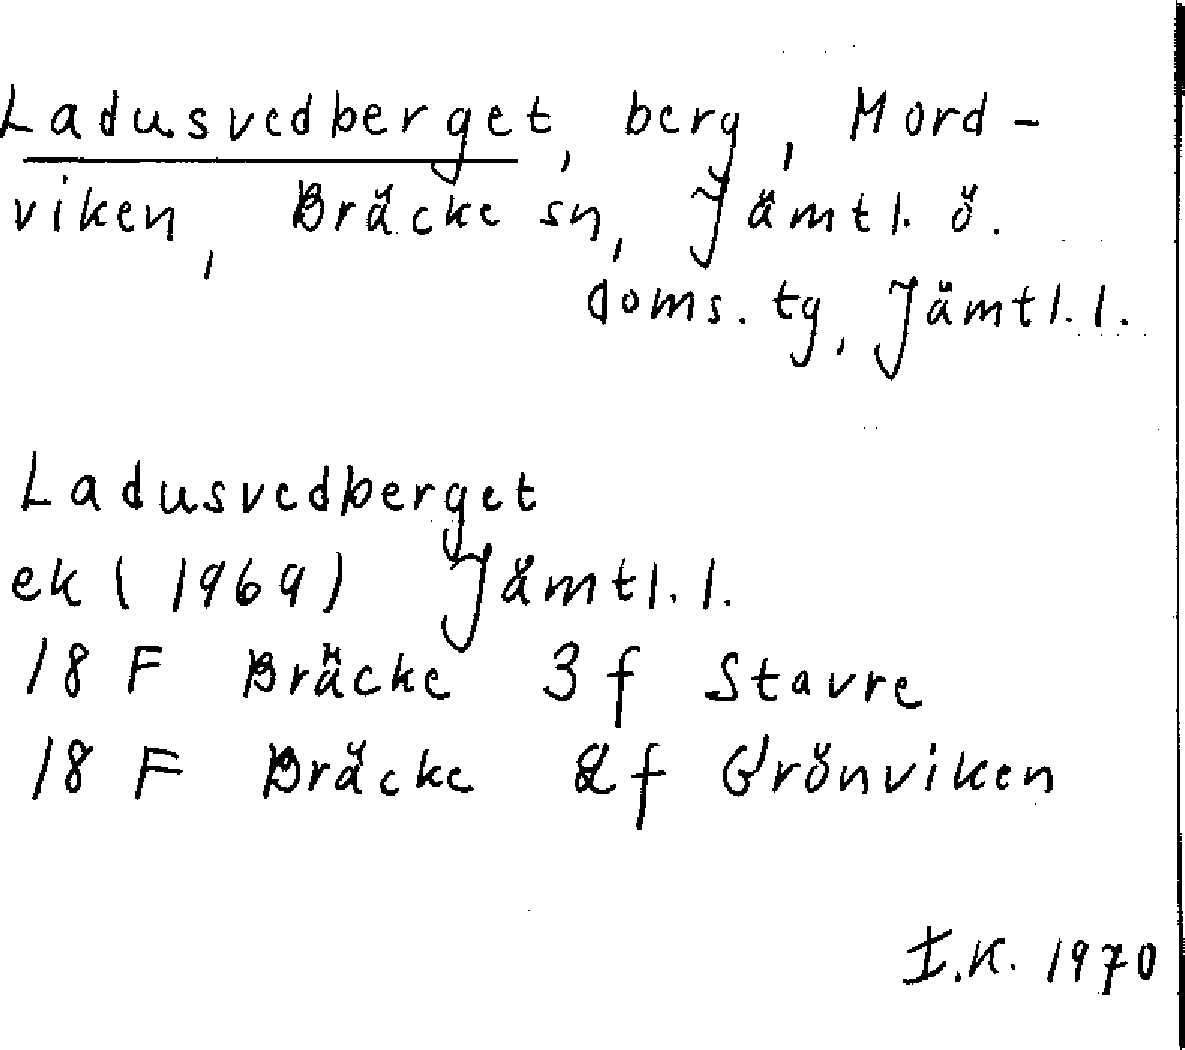 Ladusvedberget, berg, Mord-
viken, Bräcke sn, Jämtl. ö.
doms. tg, Jämtl. l.
Ladusvedberget
ek (1969) Jämtl. l.
18 F Bräcke 3 f Stavre
18 F Bräcke 2 f Grönviken
I.K. 1970